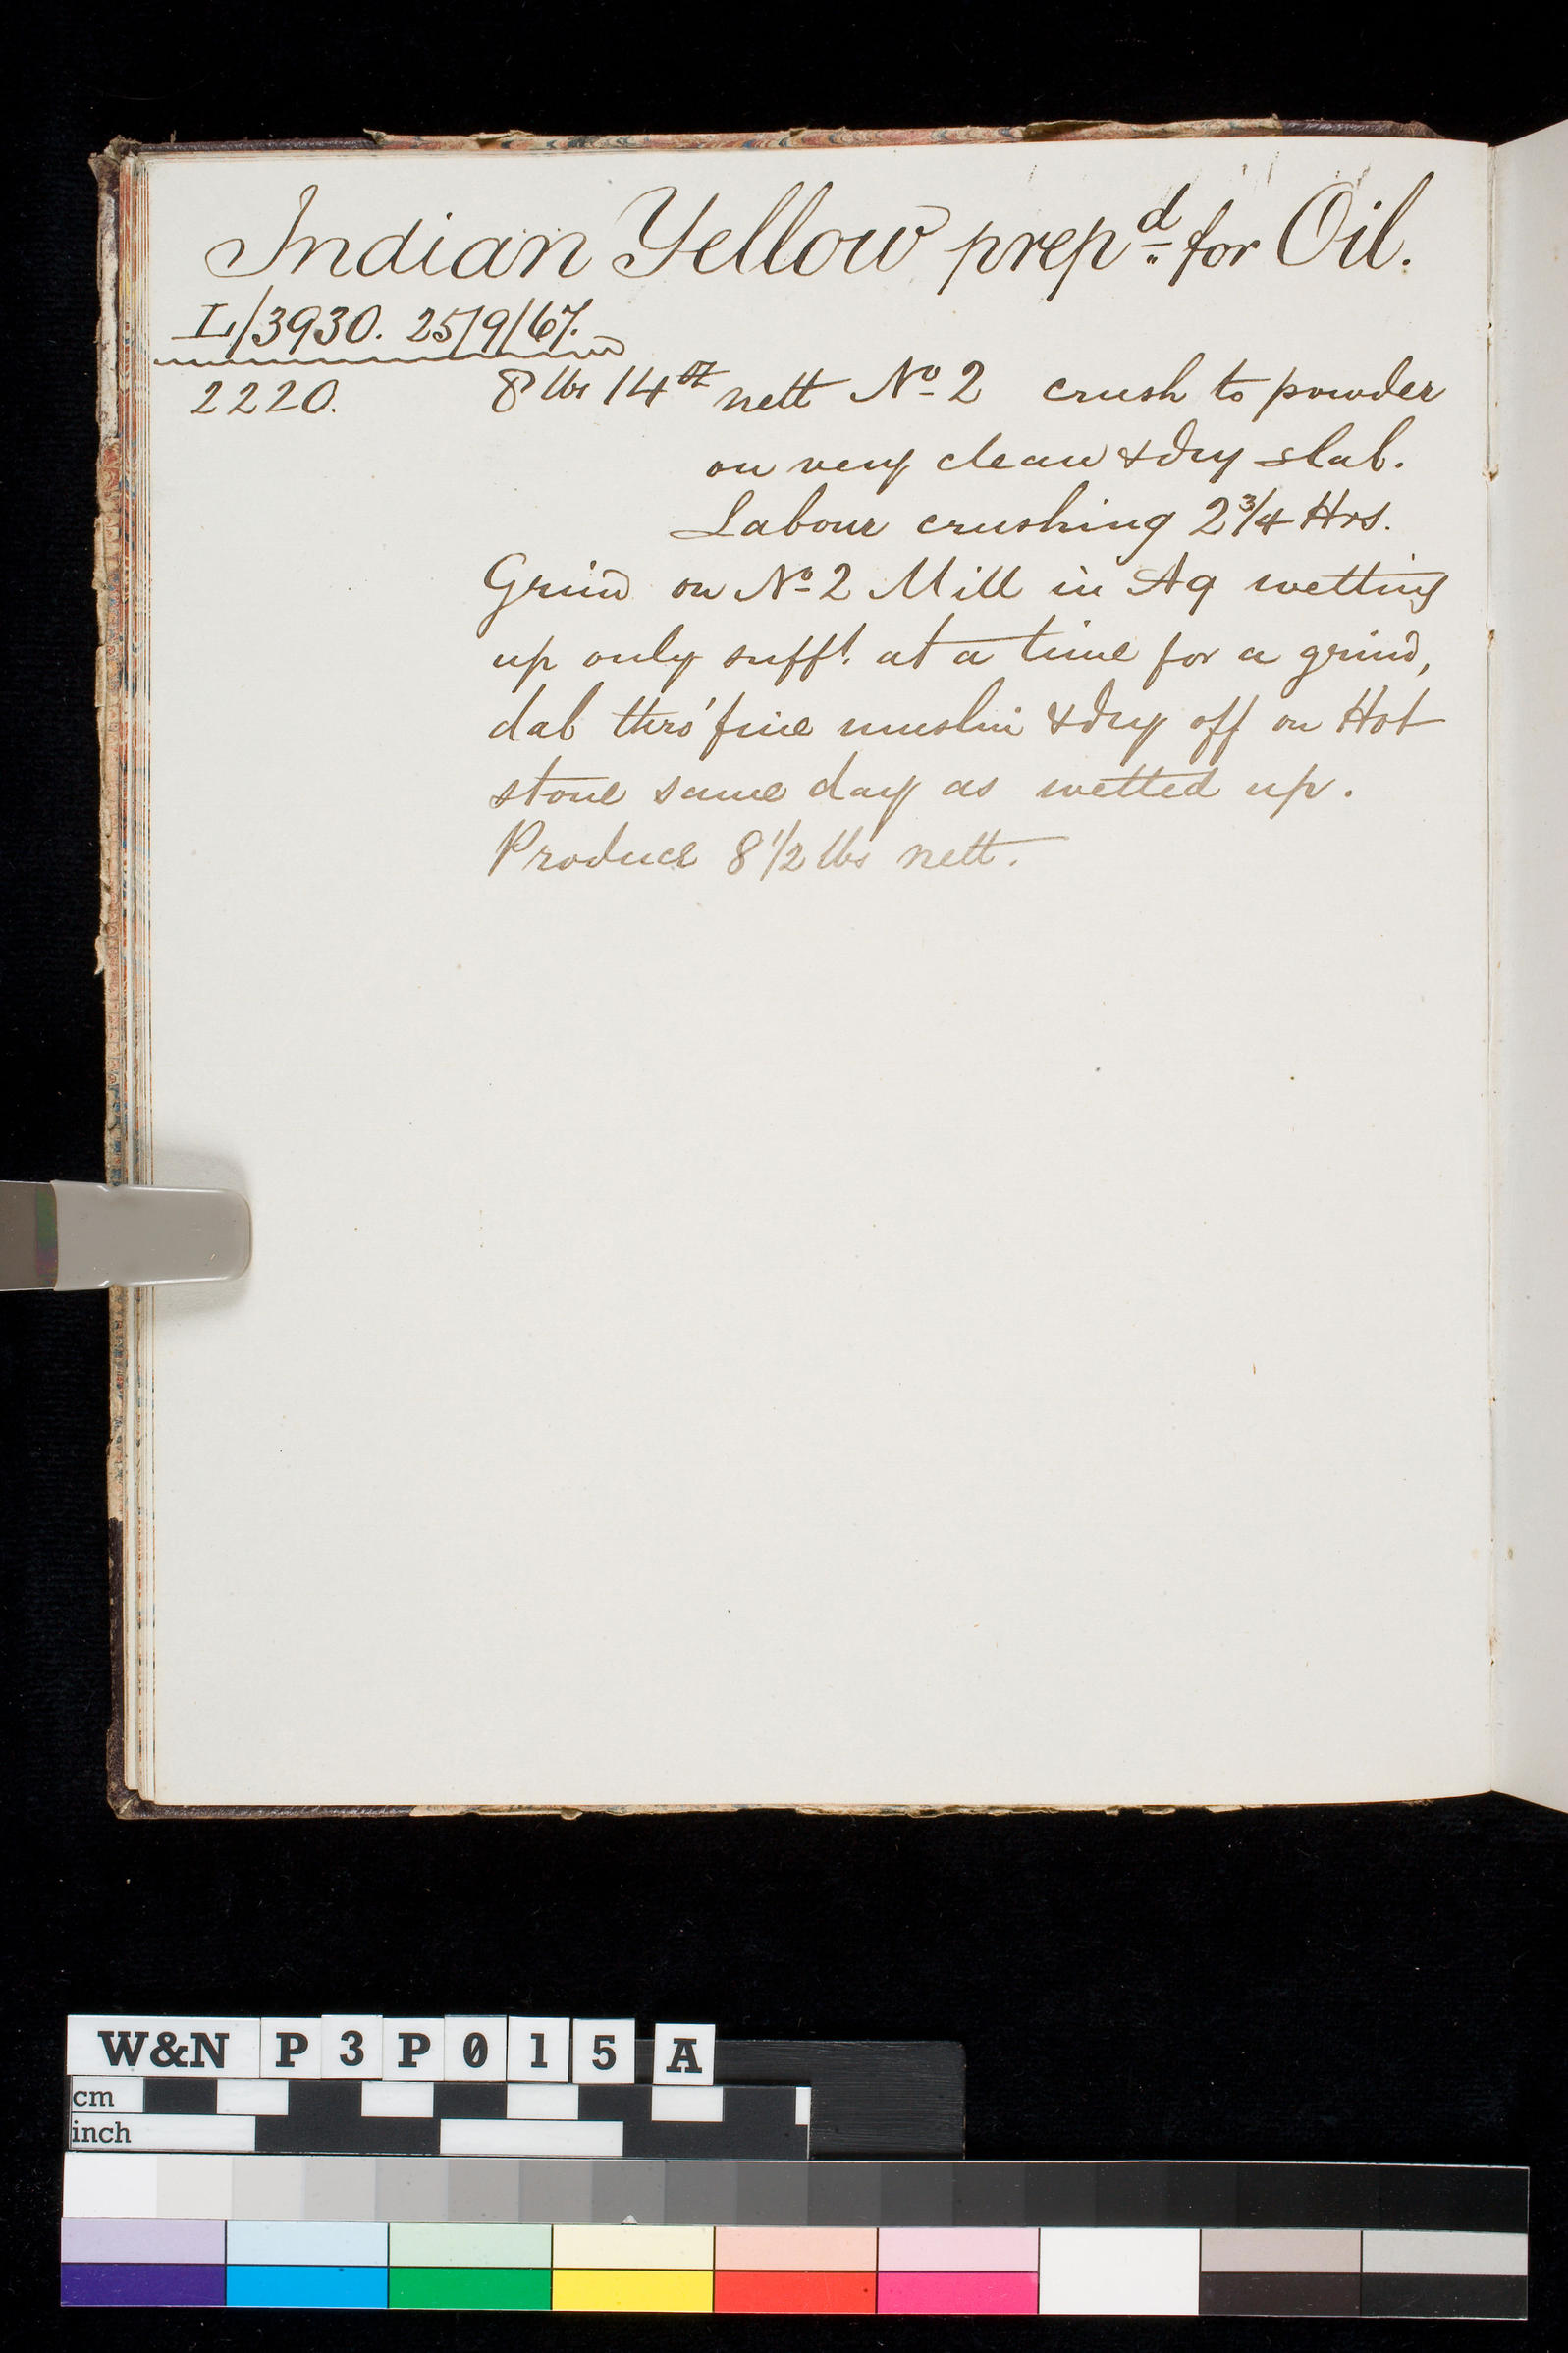 Indian Yellow prepd for Oil.
L/3930. 25/9/67.
2220. 8 lbs 14 oz nett No 2 crush to powder
on very clean & dry slab.
Labour crushing 2 3/4 Hrs.
Grind on No 2 Mill in Aq wetting
up only sufft. at a time for a grind,
dab thro' fine muslin & dry off on Hot
stone same day as wetted up.
Produce 8 1/2 lbs nett.
W&N P3P015A
cm
inch